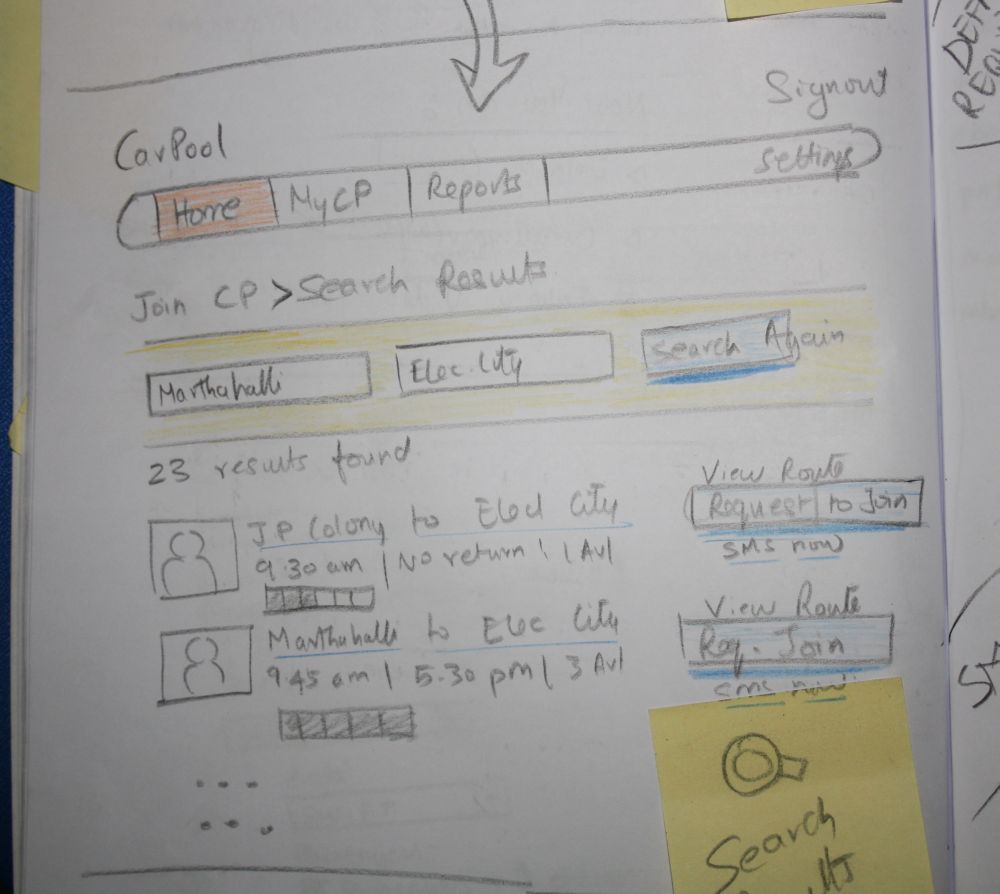 Signout
CarPool
Home MyCP Reports Settings
Join CP > Search Results
Marthahalli Elec. City Search Again
23 results found
View Route
JP Colony to Elec City Request to Join
9.30 am | No return | 1 Avl SMS now
View Route
Marthahalli to Elec City Req. Join
9.45 am | 5.30 pm | 3 Avl SMS now
Search